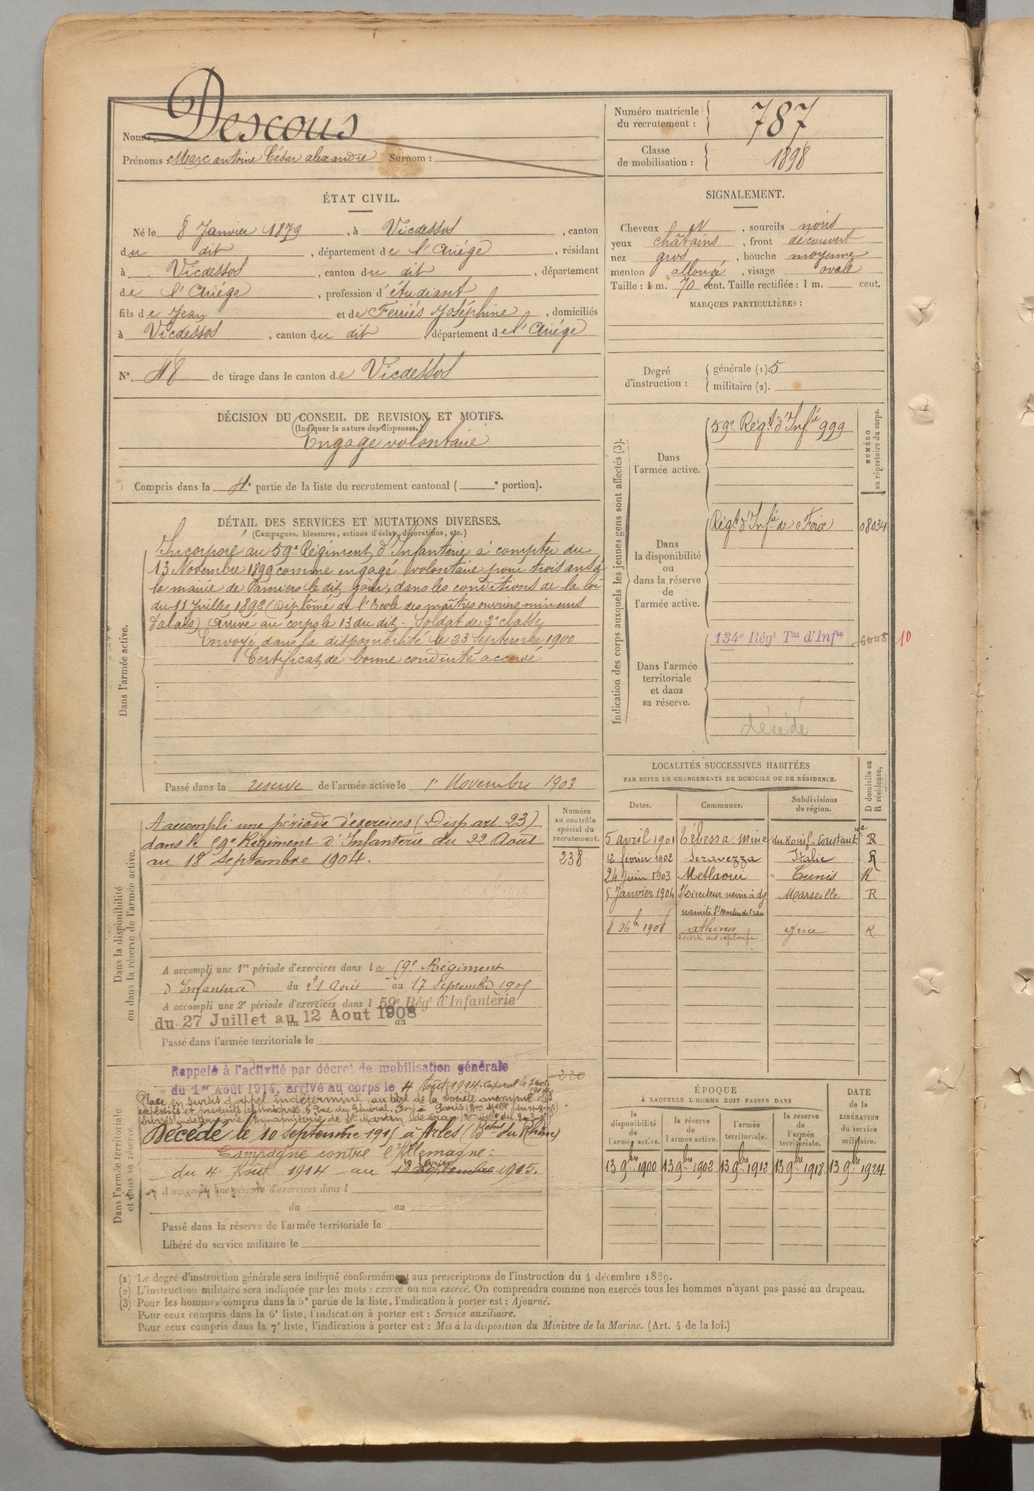 Nom: Descous
Prénoms Marc antoine César alexandre Surnom :
Numéro matricule du recrutement : 787
Classe de mobilisation : 1898
ÉTAT CIVIL.
Né le 8 Janvier 1879, à Vicdessos, canton
du dit, département de l'Ariège, résidant
à Vicdessos, canton du dit, département
de l'Ariège, profession d'étudiant
fils de Jean et de Ferriés Joséphine, domiciliés
à Vicdessos, canton du dit, département de l'Ariège
N°. 48 de tirage dans le canton de Vicdessos
SIGNALEMENT.
Cheveux, sourcils noirs
yeux châtains, front découvert
nez gros, bouche moyenne
menton allongé, visage ovale
Taille : 1 m. 70 cent. Taille rectifiée : 1 m. cent.
MARQUES PARTICULIÈRES :
Degré d'instruction : générale (1) 5
militaire (2).
DÉCISION DU CONSEIL DE REVISION ET MOTIFS.
(Indiquer la nature des dispenses.)
Engagé volontaire
Compris dans la 4e partie de la liste du recrutement cantonal ( e portion).
DÉTAIL DES SERVICES ET MUTATIONS DIVERSES.
(Campagnes, blessures, actions d'éclat, décorations, etc.)
Dans l'armée active.
Incorporé au 59e Régiment d'Infanterie à compter du
13 Novembre 1899 comme engagé volontaire pour trois ans à
la mairie de Pamiers le dit jour, dans les conditions de la loi
du 11 Juillet 1892 (Diplômé de l'Ecole des maîtres ouvriers mineurs
d'alais) Arrivé au corps le 13 du dit. Soldat de 2e classe
Envoyé dans la disponibilité le 23 Septembre 1900
Certificat de bonne conduite accordé
Passé dans la réserve de l'armée active le 1er Novembre 1903
Indication des corps auxquels les jeunes gens sont affectés (3).
NUMÉRO au répertoire du corps.
Dans l'armée active.
59e Régt d'Infie 999
Dans la disponibilité ou dans la réserve de l'armée active.
Régt d'Infie de Foix 08034
Dans l'armée territoriale et dans sa réserve.
134e Régt Tal d'Infie 10
décédé
LOCALITÉS SUCCESSIVES HABITÉES
PAR SUITE DE CHANGEMENTS DE DOMICILE OU DE RÉSIDENCE.
Dates. Communes. Subdivisions de région. D domicile ou R résidence.
5 avril 1901 Tébessa mine du Kouif Constantine R
12 février 1902 Seravezza Italie R
24 juin 1903 Metlaoui Tunis R
5 Janvier 1904 Marseille R
8 Xbre athènes grèce R
Dans la disponibilité ou dans la réserve de l'armée active.
Numéro au contrôle spécial du recrutement.
238
A accompli une période d'exercices (Disp art 23)
dans le 59e Régiment d'Infanterie du 22 Août
au 18 Septembre 1904.
A accompli une 1re période d'exercices dans le 59e Régiment
d'Infanterie du 21 Août au 17 Septembre 1905
A accompli une 2e période d'exercices dans l 59e Régt d'Infanterie
du 27 Juillet au 12 Aout 1908
Passé dans l'armée territoriale le
Dans l'armée territoriale et dans sa réserve.
Rappelé à l'activité par décret de mobilisation générale
du 1er Août 1914, arrivé au corps le 4 Août 1914. Caporal le
Placé en sursis d'appel indéterminé, au titre de la Société anonyme
Décédé le 10 Septembre 1915 à Arles (Bches du Rhône)
Campagne contre l'Allemagne :
du 4 Août 1914 au Septembre 1915.
A accompli une période d'exercices dans l
du au
Passé dans la réserve de l'armée territoriale le
Libéré du service militaire le
ÉPOQUE
À LAQUELLE L'HOMME DOIT PASSER DANS
la disponibilité de l'armée active. la réserve de l'armée active. l'armée territoriale. la réserve de l'armée territoriale.
DATE de la LIBÉRATION du service militaire.
13 9bre 1900 13 9bre 1902 13 9bre 1912 13 9bre 1918 13 9bre 1924
(1) Le degré d'instruction générale sera indiqué conformément aux prescriptions de l'instruction du 4 décembre 1889.
(2) L'instruction militaire sera indiquée par les mots : exercé ou non exercé. On comprendra comme non exercés tous les hommes n'ayant pas passé au drapeau.
(3) Pour les hommes compris dans la 5e partie de la liste, l'indication à porter est : Ajourné.
Pour ceux compris dans la 6e liste, l'indication à porter est : Service auxiliaire.
Pour ceux compris dans la 7e liste, l'indication à porter est : Mis à la disposition du Ministre de la Marine. (Art. 4 de la loi.)